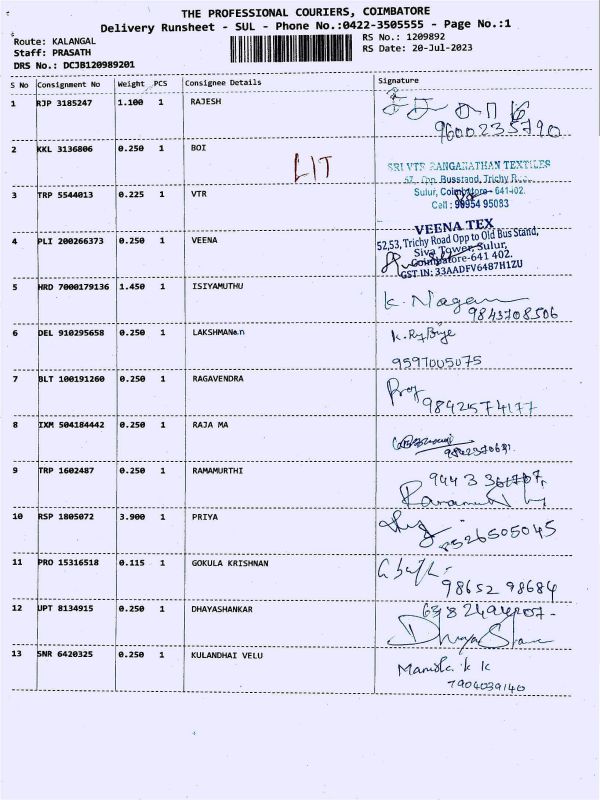 THE PROFESSIONAL COURIERS, COIMBATORE
Delivery Runsheet - SUL - Phone No.:0422-3505555 - Page No.:1
Route: KALANGAL
RS No.: 1209892
Staff: PRASATH
RS Date: 20-Jul-2023
DRS No.: DCJB120989201
S No Consignment No Weight PCS Consignee Details Signature
1 RJP 3185247 1.100 1 RAJESH
9600235790
2 KKL 3136806 0.250 1 BOI
LIT
SRI VTR RANGANATHAN TEXTILES
67, Opp. Busstand, Trichy
3 TRP 5544013 0.225 1 VTR
Sulur, Coimbatore - 641402.
Cell : 98954 95083
VEENA TEX
4 PLI 200266373 0.250 1 VEENA
52,53, Trichy Road Opp to Old Bus Stand,
Siva Tower, Sulur,
Coimbatore-641 402.
GST IN: 33AADFV6487H1ZU
5 HRD 7000179136 1.450 1 ISIYAMUTHU
K. Nagam
9843708506
6 DEL 910295658 0.250 1 LAKSHMANan
9597005075
7 BLT 100191260 0.250 1 RAGAVENDRA
98421574177
8 IXM 504184442 0.250 1 RAJA MA
9 TRP 1602487 0.250 1 RAMAMURTHI
10 RSP 1805072 3.900 1 PRIYA
8526505045
11 PRO 15316518 0.115 1 GOKULA KRISHNAN
98652 98684
12 UPT 8134915 0.250 1 DHAYASHANKAR
13 SNR 6420325 0.250 1 KULANDHAI VELU
7904039140